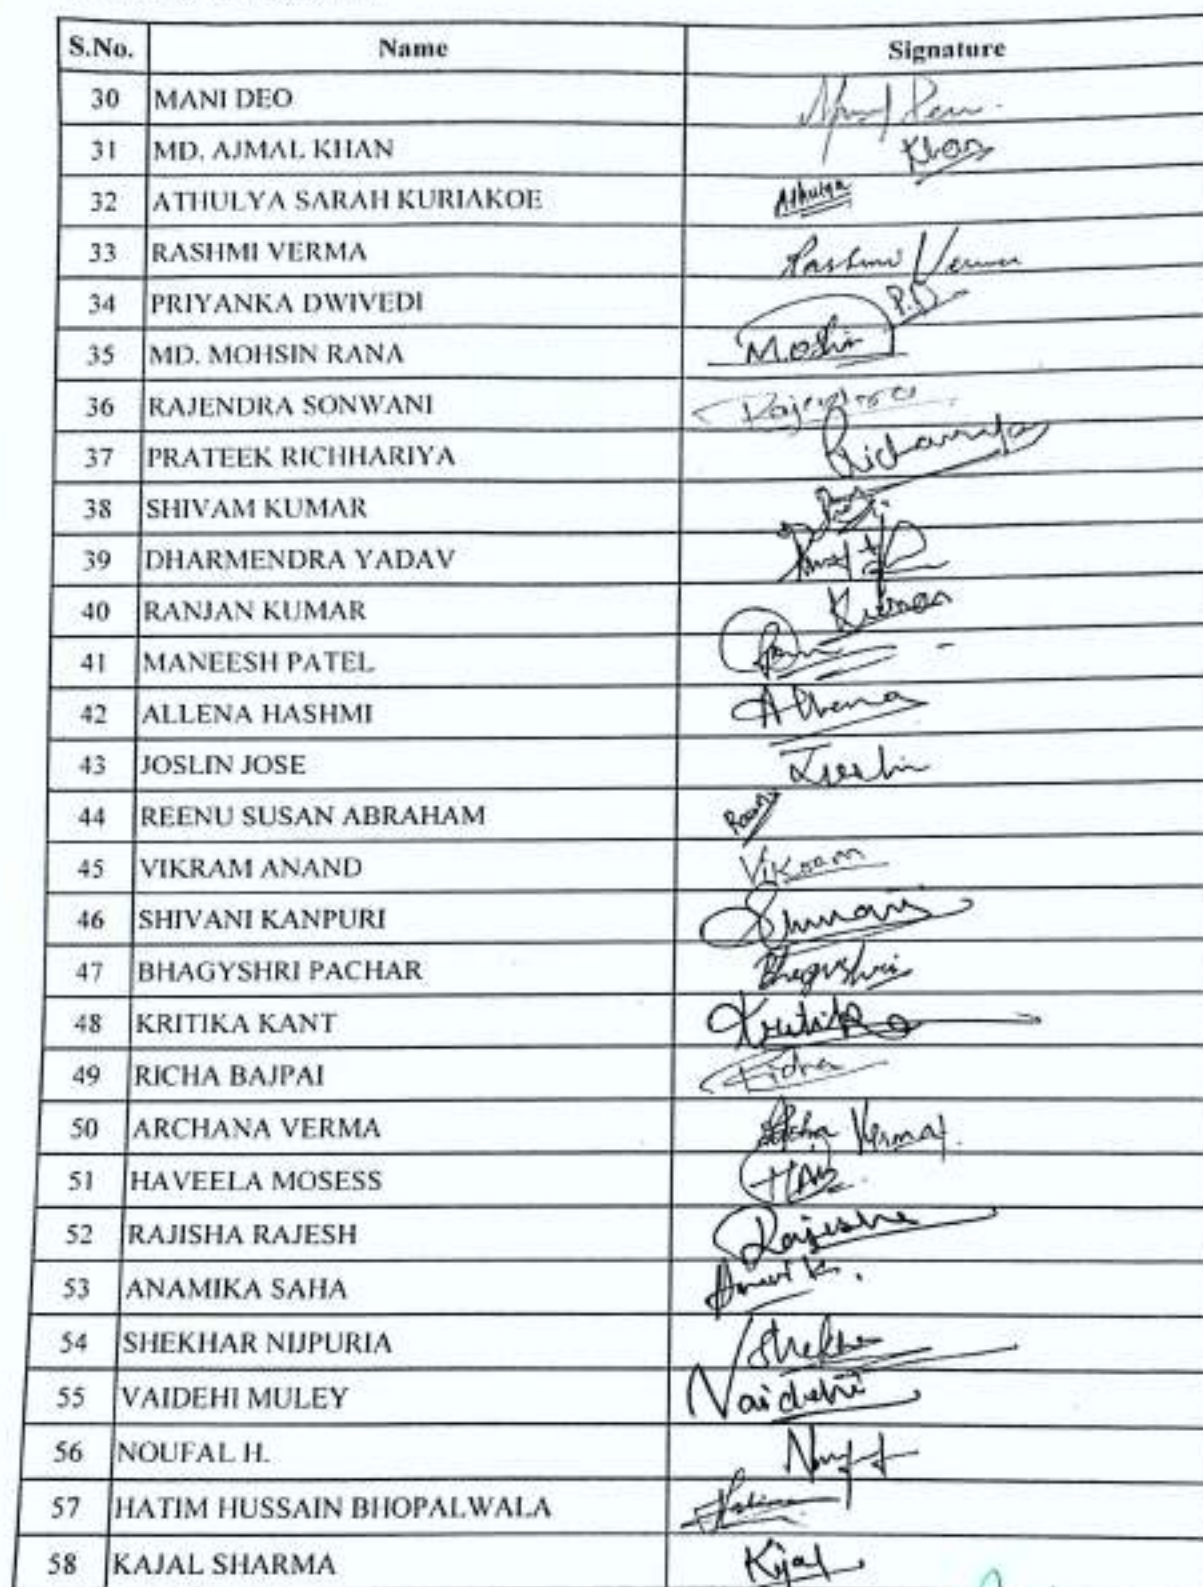 S.No. Name Signature
30 MANI DEO
31 MD. AJMAL KHAN Khan
32 ATHULYA SARAH KURIAKOE Athulya
33 RASHMI VERMA Rashmi Verma
34 PRIYANKA DWIVEDI P.D
35 MD. MOHSIN RANA Moshin
36 RAJENDRA SONWANI Rajendra
37 PRATEEK RICHHARIYA
38 SHIVAM KUMAR
39 DHARMENDRA YADAV
40 RANJAN KUMAR Kumar
41 MANEESH PATEL
42 ALLENA HASHMI Allena
43 JOSLIN JOSE Joslin
44 REENU SUSAN ABRAHAM Reenu
45 VIKRAM ANAND Vikram
46 SHIVANI KANPURI Shivani
47 BHAGYSHRI PACHAR Bhagyshri
48 KRITIKA KANT Kritika
49 RICHA BAJPAI Richa
50 ARCHANA VERMA Verma
51 HAVEELA MOSESS
52 RAJISHA RAJESH Rajisha
53 ANAMIKA SAHA
54 SHEKHAR NIJPURIA Shekhar
55 VAIDEHI MULEY Vaidehi
56 NOUFAL H.
57 HATIM HUSSAIN BHOPALWALA Hatim
58 KAJAL SHARMA Kajal